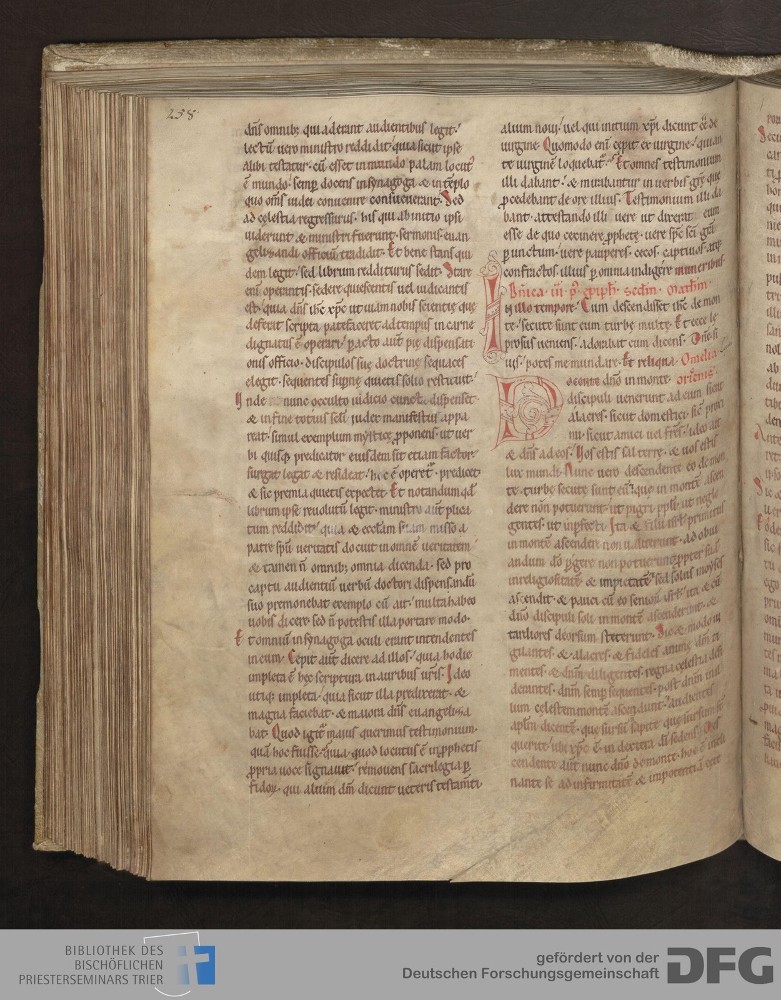 258
dn̄s omnib; qui aderant audientibus legit.
lectū uero ministro reddidit. quia sicut ipse
alibi testatur. cū esset in mundo palam locut᷒
ē mundo. semp docens in synagoga & in tēplo
quo om̄s iudei conuenire consueuerant. Sed
ad celestia regressurus. his qui ab initio ipsi
uiderunt & ministri fuerunt sermonis. euan
gelizandi officiū tradidit. Et bene stans qui
dem legit. sed librum redditurus sedit. Stare
enī operantis. sedere quiescentis uel iudicantis
est. quia dn̄s ih̄c xp̄c ut uiam nobis scientię quę
deferit scripta patefaceret. ad tempus in carne
dignatus ē operari. pacto aut̄ pię dispensati
onis officio. discipulos suę doctrinę sequaces
elegit.
Inde nunc occulto iudicio cuncta dispenset.
& in fine totius sc̄li iudex manifestus appa
reat. simul exemplum mystice proponens. ut uer
bi quisq; predicator eiusdem sit etiam factor.
surgat legat & resideat. hoc ē operet᷒. predicet
& sic premia quietis expectet. Et notandum qd̄
librum ipse reuolutū legit. ministro aut̄ plica
tum reddidit. quia & ecclām suam misso a
patre sp̄u ueritatis docuit in omnē ueritatem
& tamen n̄ omnib; omnia dicenda. sed pro
captu audientiū uerbū doctori dispensandū
suo premonebat exemplo cū ait. multa habeo
uobis dicere. sed n̄ potestis illa portare modo.
Et omniū in synagoga oculi erant intendentes
in eum. Cepit aut̄ dicere ad illos. quia hodie
impleta ē hec scriptura in auribus ur̄is. Ideo
utiq; impleta. quia sicut illa predixerat. &
magna faciebat. & maiora dn̄s euangeliza
bat. Quod igit᷒ maius querimus testimonium.
quā hoc fuisse. quia quod locutus ē in pphetis
ppria uoce signauit. remouens sacrilegia p
fidoꝝ. qui alium dm̄ dicunt ueteris testam̄ti.
alium noui. uel qui initium xp̄i dicunt eē de
uirgine. Quomodo enī cepit ex uirgine. qui an
te uirginē loquebat᷒. Et omnes testimonium
illi dabant. & mirabantur in uerbis grę que
pcedebant de ore illius. Testimonium illi da
bant. attestando illi uere ut dixerat eum
esse de quo cecinere pphetę. uere sp̄c sc̄i grā
punctum. uere pauperes. cecos. captiuos atq;
confractos. illius p omnia indigere muneribus
Dn̄ica iii. p᷒ epiph̄. sedm̄. matth̄m.
In illo tempore. Cum descendisset ih̄c de mon
te. secute sunt eum turbę multę. Et ecce le
prosus ueniens. adorabat eum dicens. Dn̄e si
uis. potes me mundare. Et reliqua. Omelia
Origenis
Docente dn̄o in monte.
discipuli uenerunt ad eum sicut
alacres. sicut domestici. sic᷒ proxi
mi. sicut amici uel frēs. ideo ait
& dn̄s ad eos. Vos estis sal terrę. & uos estis
lux mundi. Nunc uero descendente eo de mon
te. turbę secutę sunt eū. quę in monte ascen
dere non potuerunt. ut pigri pp̄li. ut negli
gentes. ut inpfecti. Ita & filii isrl̄ primitus
in montē ascendere non ualuerunt. ad obui
andum dō pgere non potuerunt. ppter suā
inreligiositatē & impietatē. sed solus moyses
ascendit. & pauci cū eo senioꝝ isrl̄. ita & cū
dn̄o discipuli soli in montē ascenderunt. &
tardiores deorsum steterunt. Sic & modo ui
gilantes. & alacres. & fideles animę dm̄ ti
mentes. & dn̄m diligentes. regna celestia desi
derantes. dn̄m semp sequentes. post dn̄m cul
tum celestem montē ascendunt. audientes
apl̄m dicentē. que sursū sapite. que sursum sūt
querite. ubi xp̄c ē in dextera dī sedens. Des
cendente aut̄ nunc dn̄o de monte. hoc ē incli
nante se ad infirmitatē & impotentiā cete
BIBLIOTHEK DES
BISCHÖFLICHEN
PRIESTERSEMINARS TRIER
gefördert von der
Deutschen Forschungsgemeinschaft
DFG